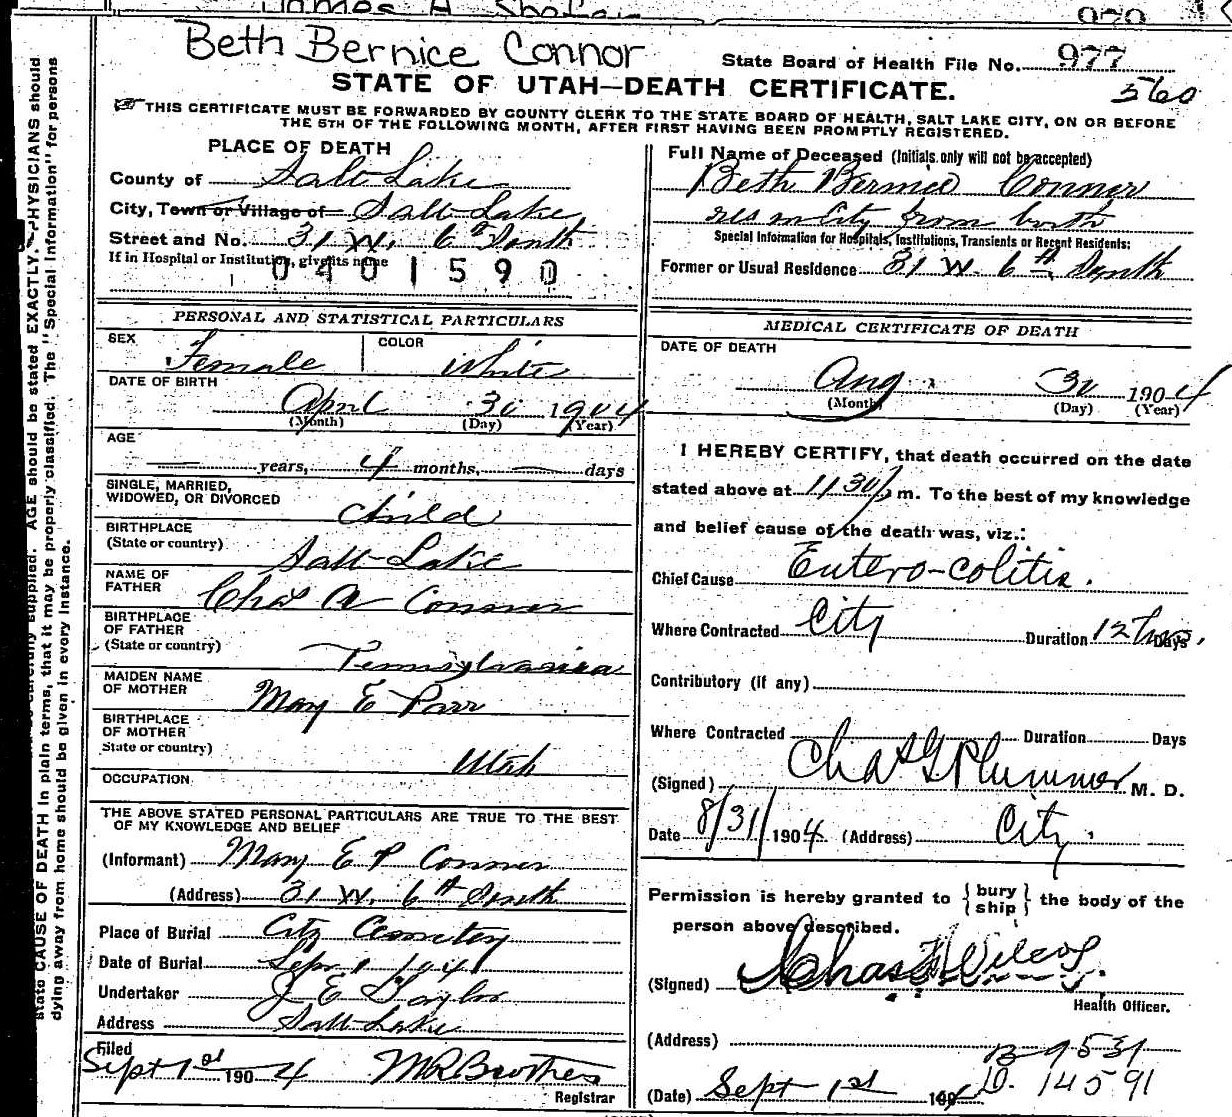 Beth Bernice Connor
State Board of Health File No. 977
STATE OF UTAH—DEATH CERTIFICATE.
560
THIS CERTIFICATE MUST BE FORWARDED BY COUNTY CLERK TO THE STATE BOARD OF HEALTH, SALT LAKE CITY, ON OR BEFORE
THE 5TH OF THE FOLLOWING MONTH, AFTER FIRST HAVING BEEN PROMPTLY REGISTERED.
PLACE OF DEATH
County of Salt Lake
City, Town or Village of Salt Lake
Street and No. 31 W. 6th South
If in Hospital or Institution, give its name
0401590
PERSONAL AND STATISTICAL PARTICULARS
SEX Female COLOR White
DATE OF BIRTH
April 30 1904
(Month) (Day) (Year)
AGE
years, 4 months, days
SINGLE, MARRIED,
WIDOWED, OR DIVORCED Child
BIRTHPLACE
(State or country) Salt Lake
NAME OF
FATHER Chas A Connor
BIRTHPLACE
OF FATHER
(State or country) Pennsylvania
MAIDEN NAME
OF MOTHER May E Parr
BIRTHPLACE
OF MOTHER
State or country) Utah
OCCUPATION
THE ABOVE STATED PERSONAL PARTICULARS ARE TRUE TO THE BEST
OF MY KNOWLEDGE AND BELIEF
(Informant) May E P Connor
(Address) 31 W. 6th South
Place of Burial City Cemetery
Date of Burial Sep 1 1904
Undertaker J E Taylor
Address Salt Lake
Filed
Sept 1st 1904 Registrar
Full Name of Deceased (Initials only will not be accepted)
Beth Bernice Connor
res in City from birth
Special Information for Hospitals, Institutions, Transients or Recent Residents:
Former or Usual Residence 31 W. 6th South
MEDICAL CERTIFICATE OF DEATH
DATE OF DEATH
Aug. 30 1904
(Month) (Day) (Year)
I HEREBY CERTIFY, that death occurred on the date
stated above at 11 30 m. To the best of my knowledge
and belief cause of the death was, viz.:
Chief Cause Entero-colitis.
Where Contracted City Duration 12 hrs. Days
Contributory (if any)
Where Contracted Duration Days
(Signed) Chas G Plummer M. D.
Date 8/31/1904 (Address) City.
Permission is hereby granted to {bury ship} the body of the
person above described.
(Signed) Chas Wilcox
Health Officer.
(Address)
B 9531
(Date) Sept 1st 190
D. 14591
state CAUSE OF DEATH in plain terms, that it may be properly classified. The "Special Information" for persons
dying away from home should be given in every instance.
supplied. AGE should be stated EXACTLY. PHYSICIANS should